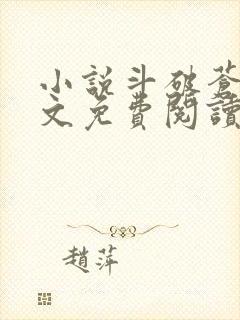 小說斗破蒼
文免費閱讀
趙萍